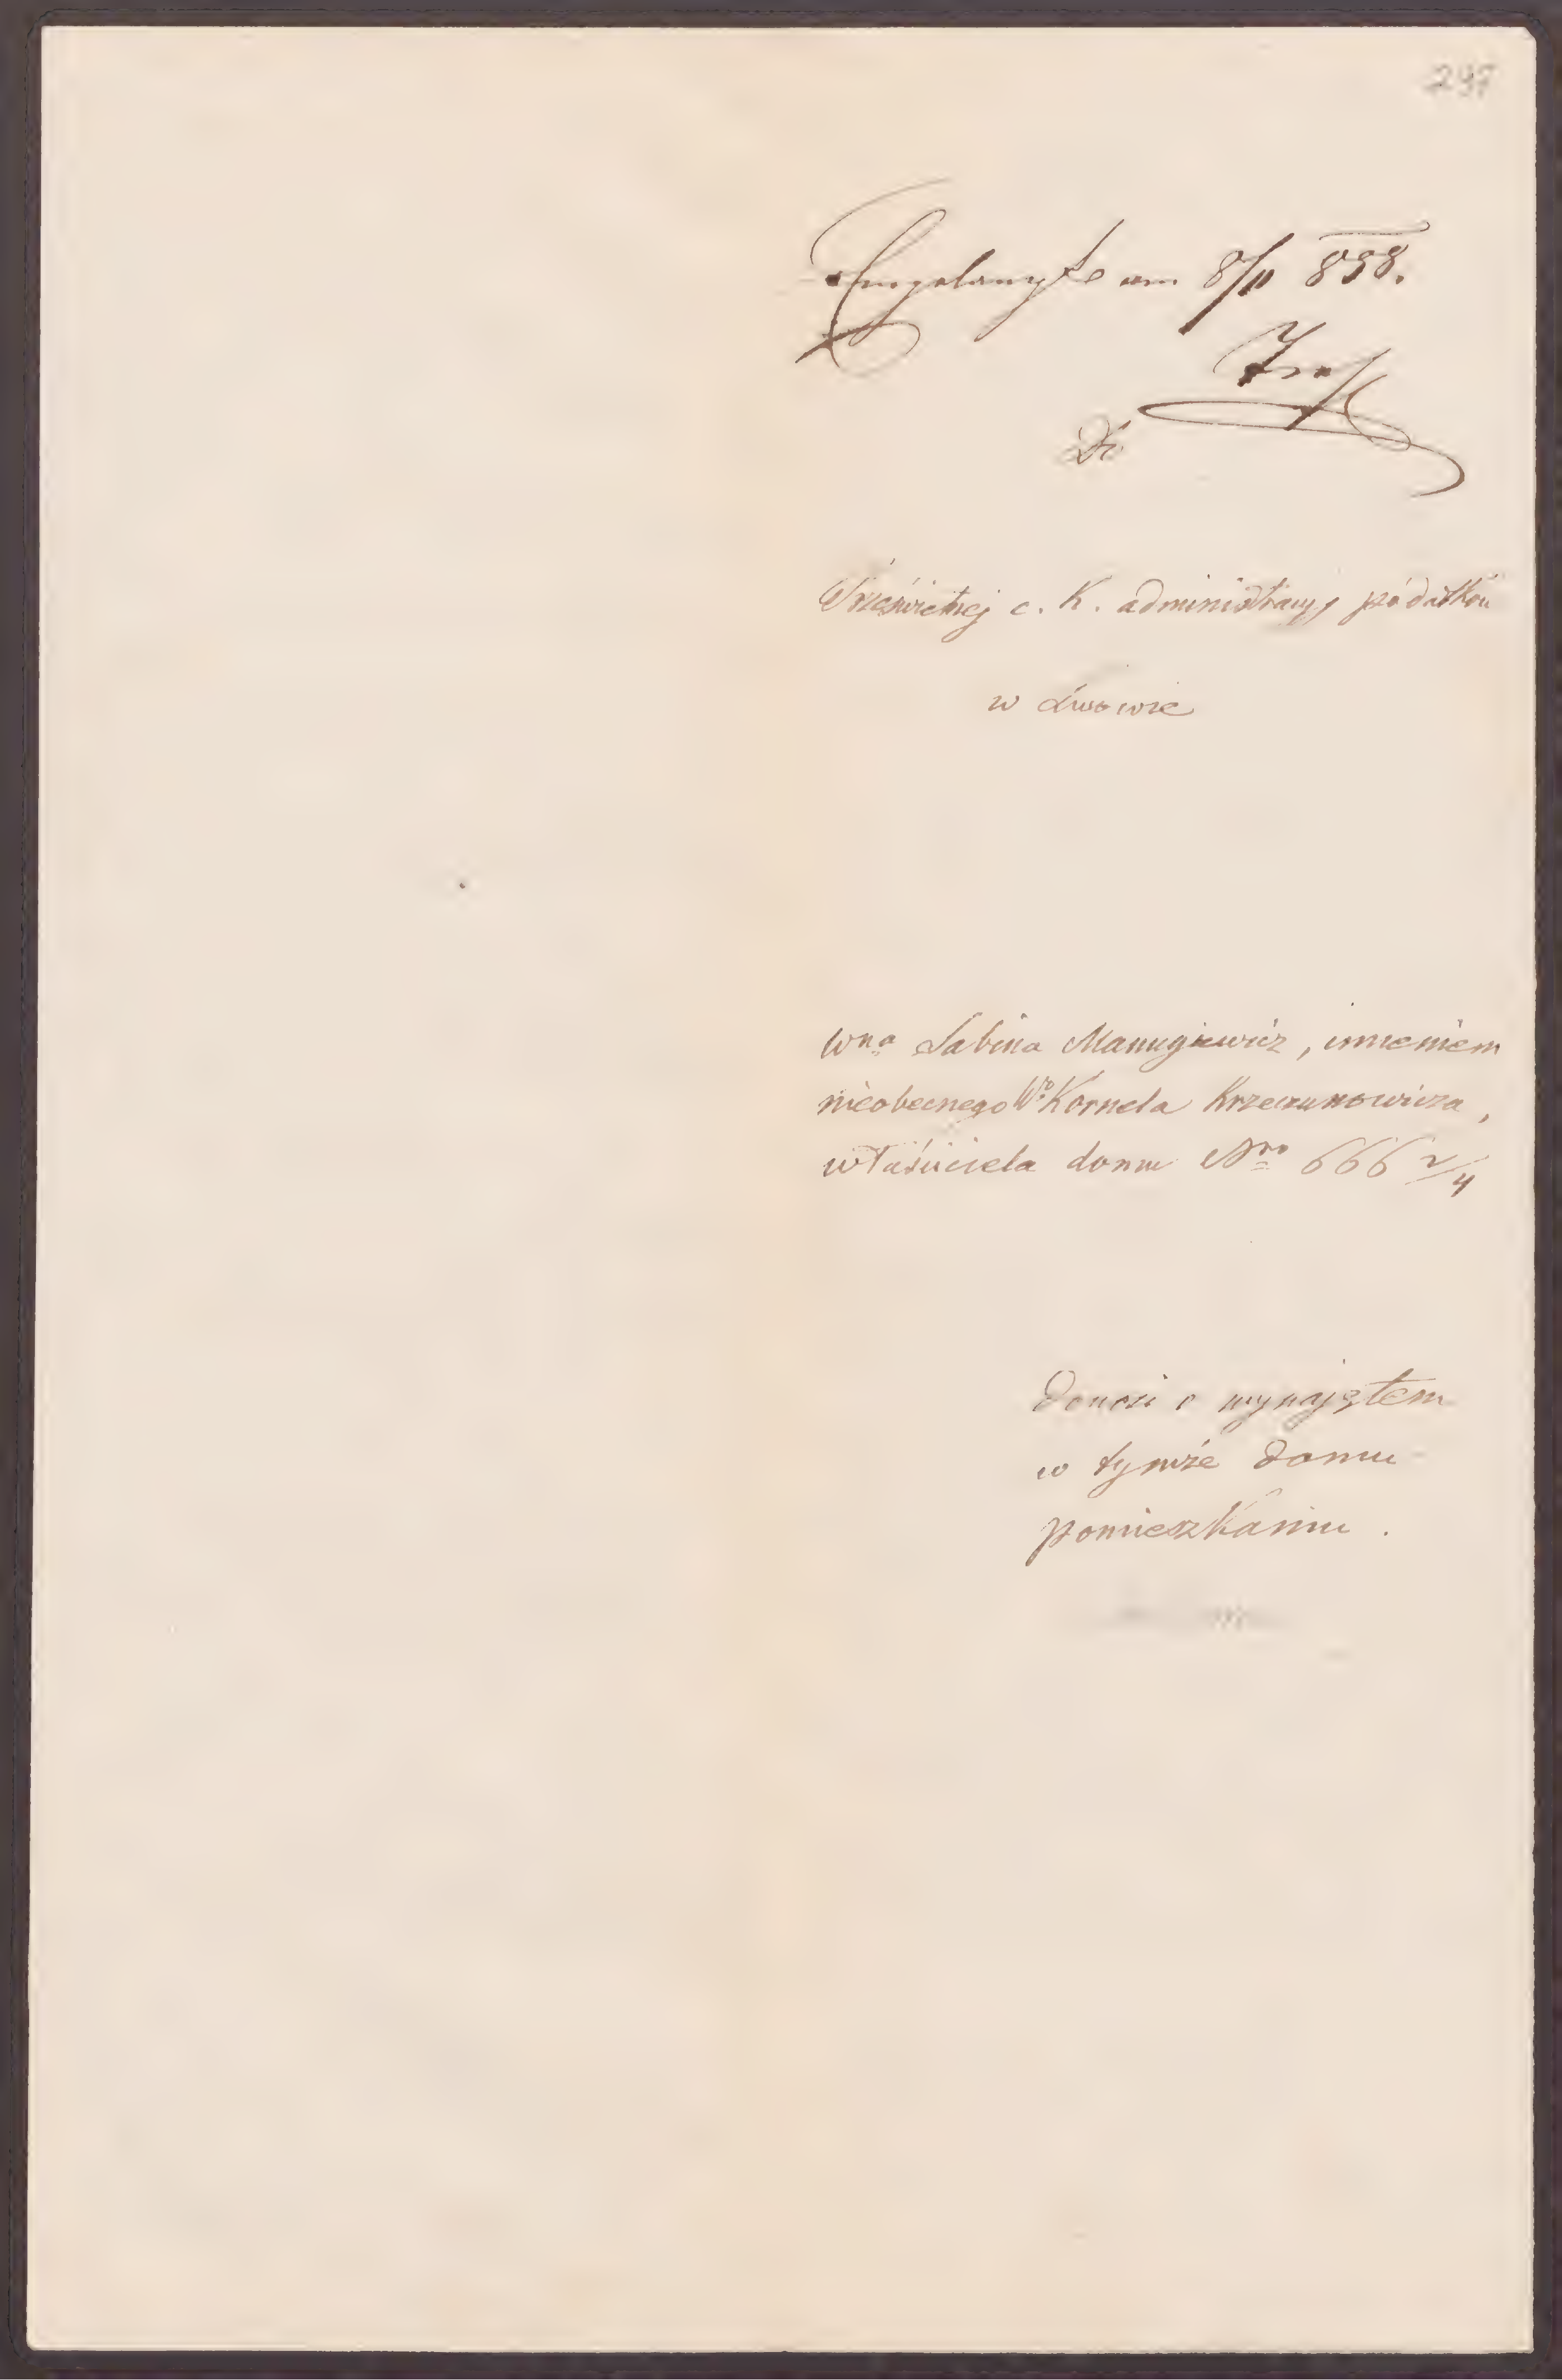 297
Eingelangt am 8/11 858.
Do
Prześwietnej c. K. administracyi podatków
w Lwowie
Wna Sabina Manugiewicz, imieniem
nieobecnego Wo Kornela Krzeczunowicza,
właściciela domu Nro 666 2/4
donosi o wynajętem
w tymże domu
pomieszkaniu.